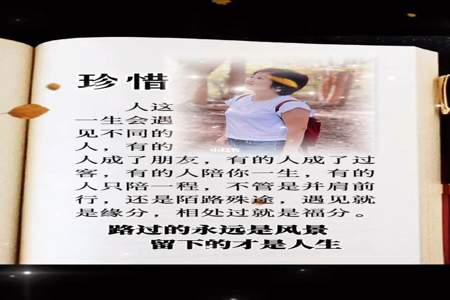 珍惜
人这
一生会遇
见不同的
人，有的
人成了朋友，有的人成了过
客，有的人陪你一生，有的
人只陪一程，不管是并肩前
行，还是陌路殊途，遇见就
是缘分，相处过就是福分。
路过的永远是风景
留下的才是人生